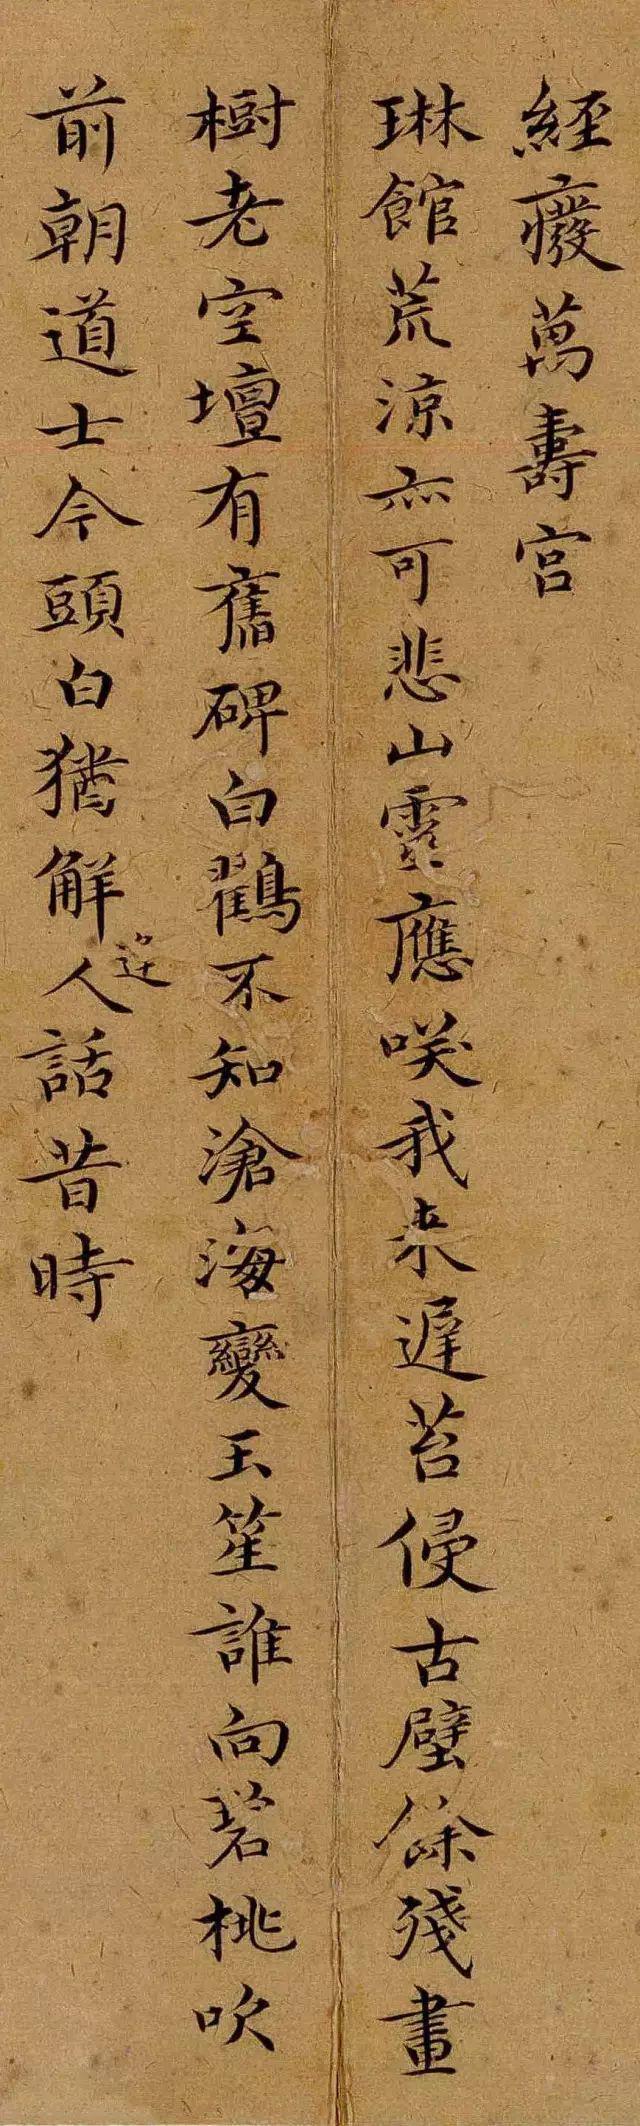 經癈萬壽宮
琳館荒涼亦可悲山靈應咲我来遲苔侵古壁餘殘畫
樹老空壇有舊碑白鶴不知滄海變玉笙誰向碧桃吹
前朝道士今頭白猶解人話昔時